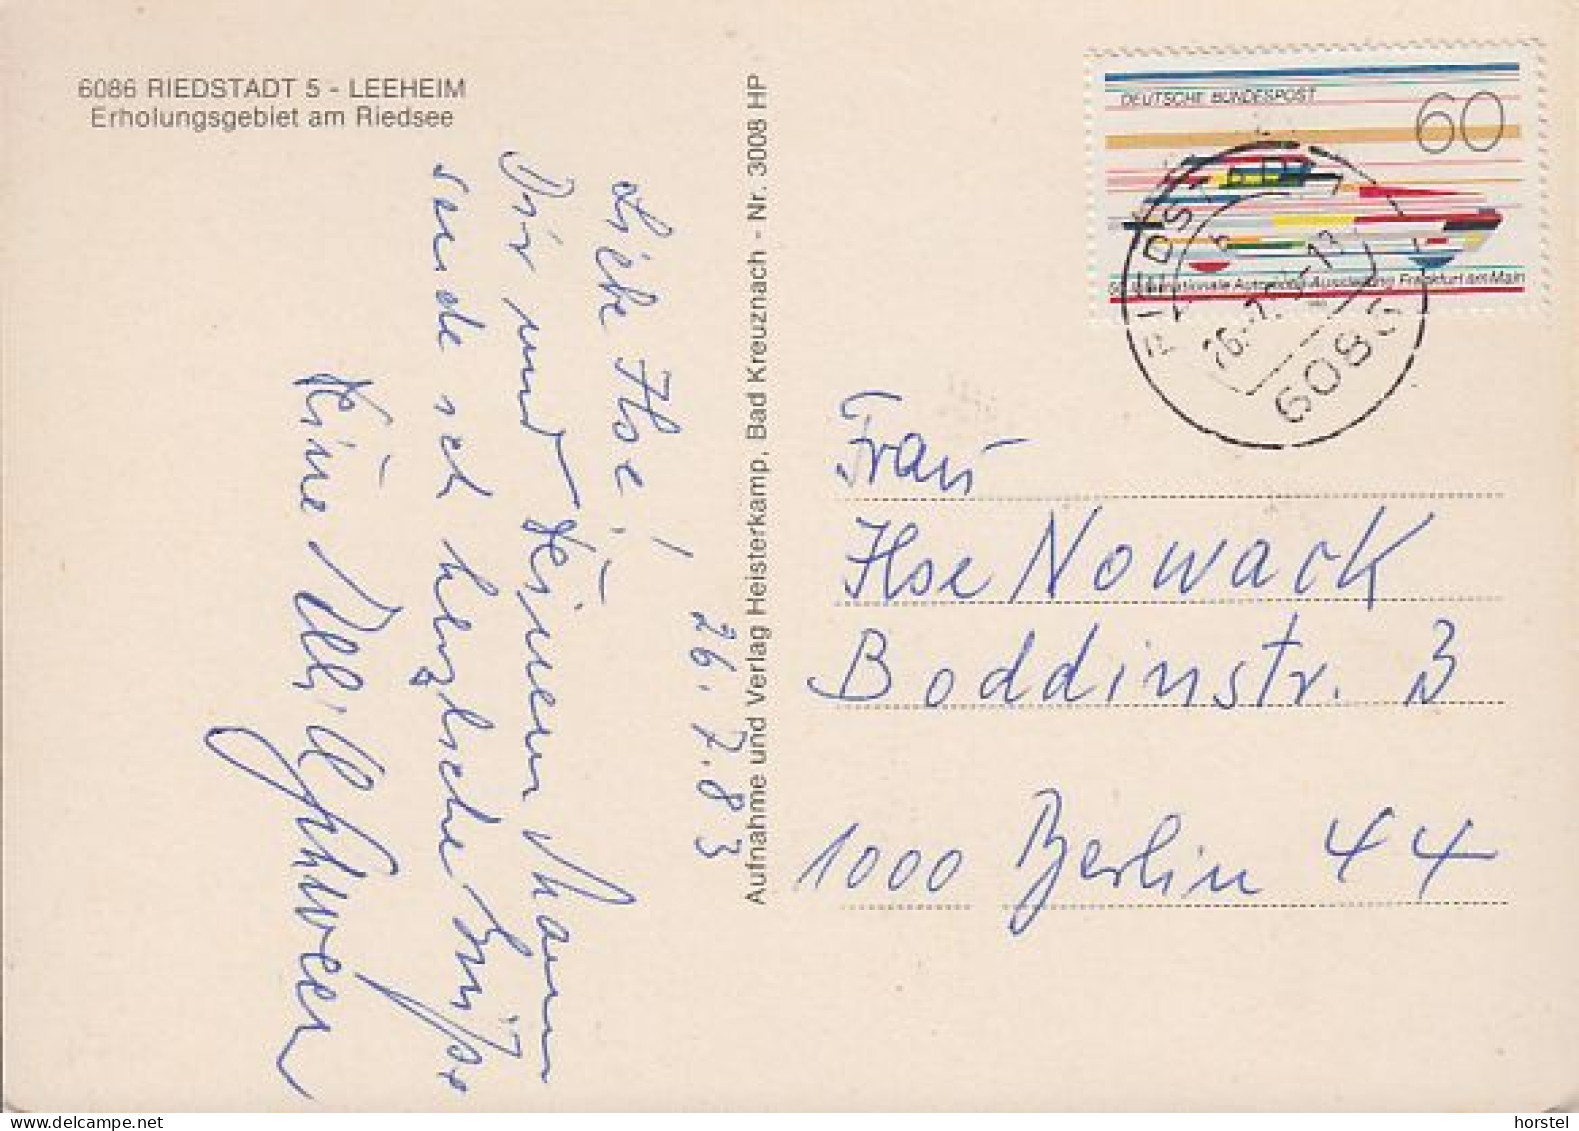 6086 RIEDSTADT 5 - LEEHEIM
Erholungsgebiet am Riedsee
26.7.83
Liebe Ilse!
Dir und Deinem Mann
sende ich herzliche Grüße
Deine
Aufnahme und Verlag Heisterkamp, Bad Kreuznach - Nr. 3008 HP
DEUTSCHE BUNDESPOST
60
Internationale Automobil-Ausstellung Frankfurt am Main
RIEDST
26.-7.83-13
6086
Frau
Ilse Nowack
Boddinstr. 3
1000 Berlin 44
horstel